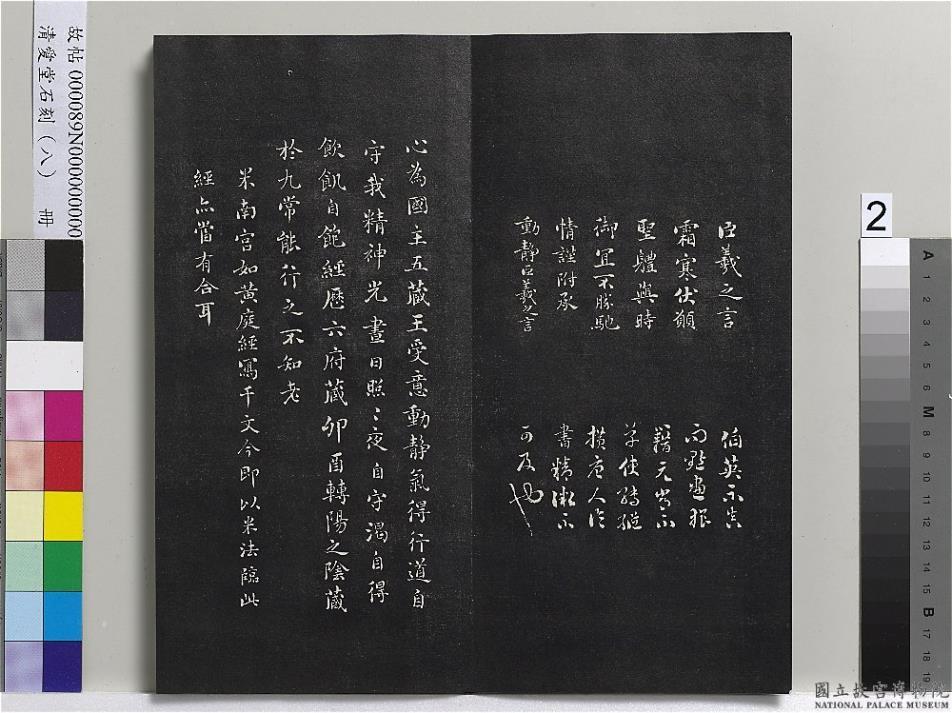 臣羲之言
霜寒伏願
聖體與時
御宜不勝馳
情謹附承
動靜臣羲之言
伯英不真
而點畫狼
藉元常不
草使轉縱
橫唐人作
書精微不
可及也
心為國主五藏王受意動靜氣得行道自
守我精神光晝日照〻夜自守渴自得
飲飢自飽經歷六府藏卯酉轉陽之陰藏
於九常能行之不知老
米南宮如黃庭經寫千文今即以米法臨此
經亦當有合耳
故帖 000089N000000000
清愛堂石刻(八) 冊
2
A 1 2 3 4 5 6 M 8 9 10 11 12 13 14 15 B 17 18 19
國立故宮博物院
NATIONAL PALACE MUSEUM